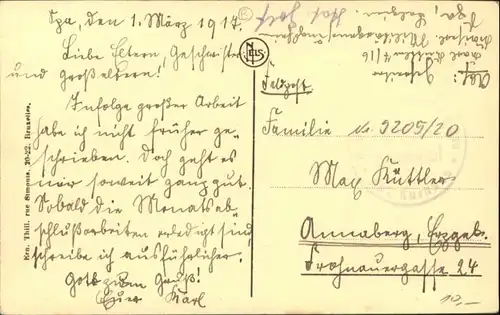 Spa, den 1. März 1917.
Liebe Eltern, Geschwister
und Großeltern!
Infolge großer Arbeit
habe ich nicht früher ge-
schrieben. Doch geht es
mir soweit ganz gut.
Sobald die Monatsab-
schlußarbeiten erledigt sind,
schreibe ich ausführlicher.
Gott zum Gruß!
Euer Karl
Ern. Thill, rue Simonis, 20-22, Bruxelles.
NELS
Feldpost
Familie
No. 5205/20
Max Küttler
Annaberg, Erzgeb.
Frohnauergasse 24
10,-
Abs:
Spa, Belgien.